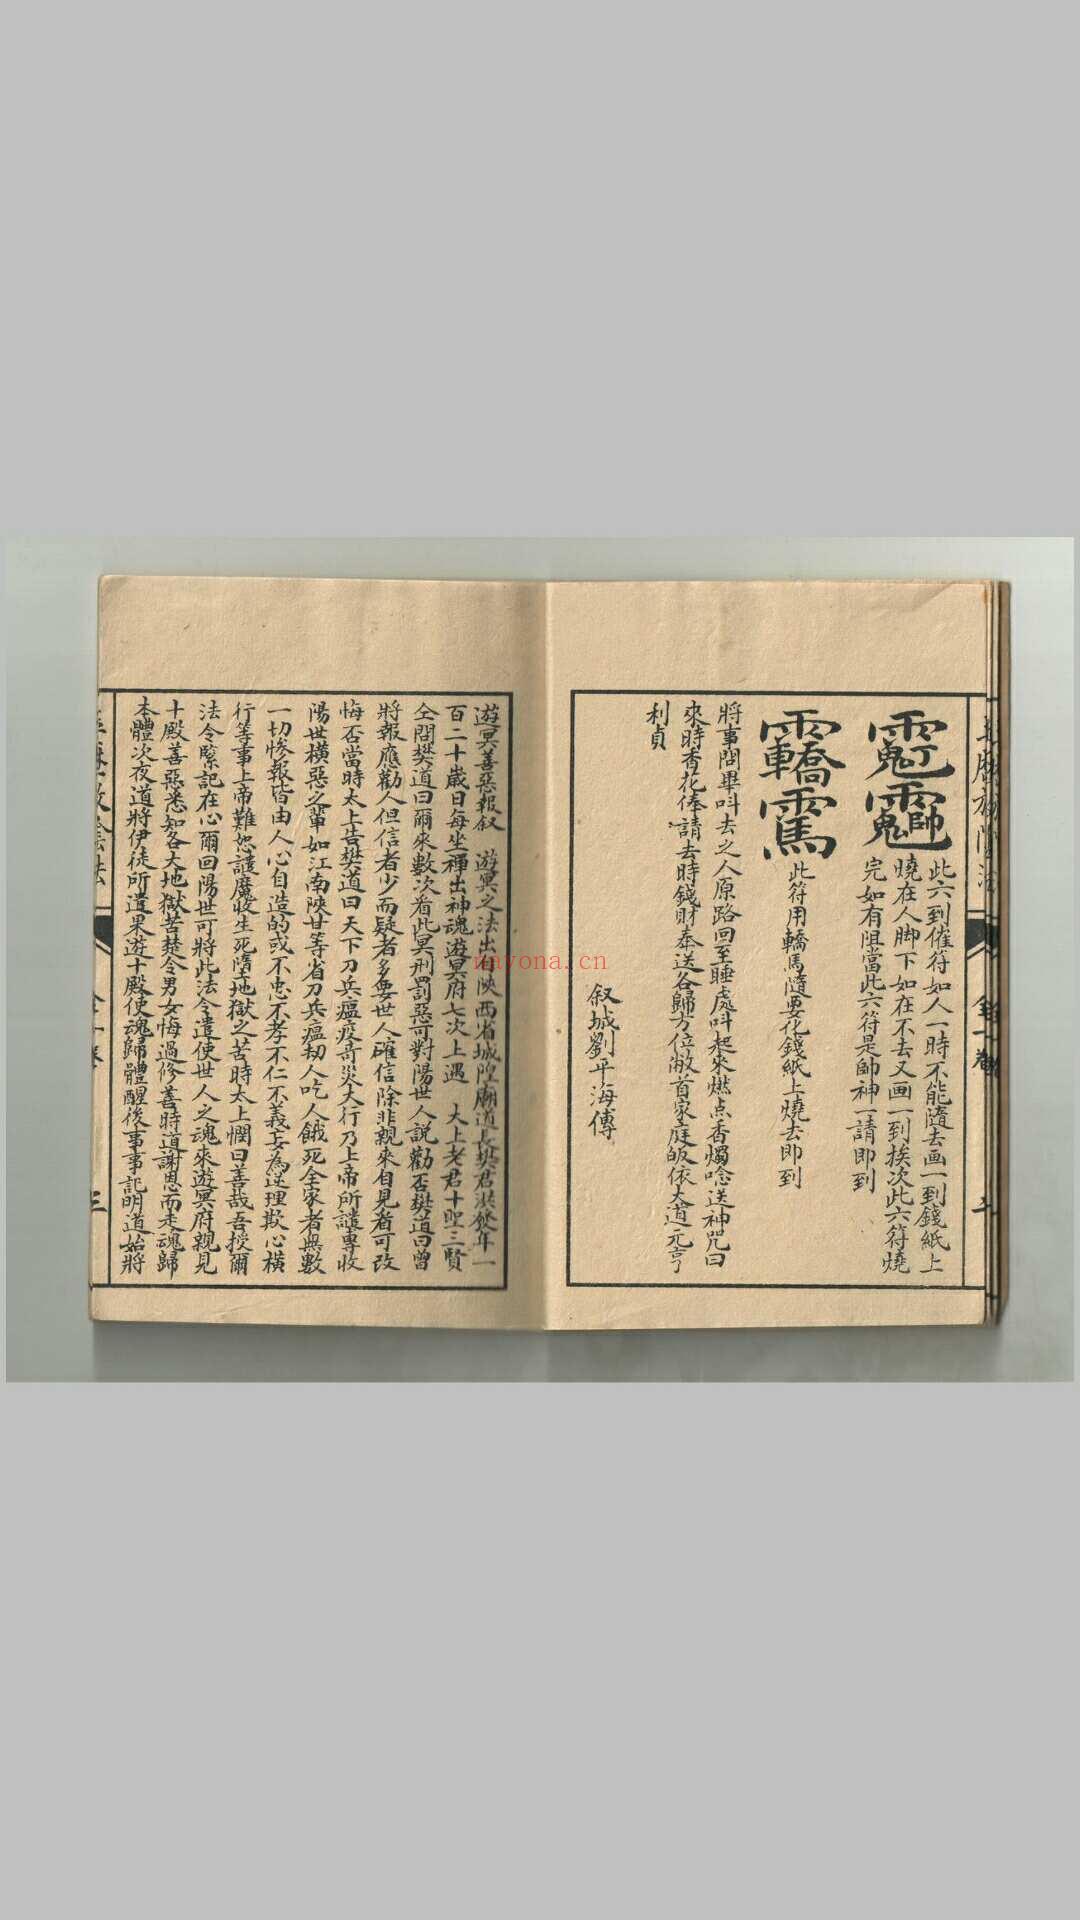 此六到催符如人一時不能隨去画一到錢紙上
曉在人脚下如在不去又画一到挨次此六符燒
完如有阻當此六符是帥神一請即到
此符用轎馬隨要化錢紙上燒去即到
將事問畢呌去之人原路回至睡處呌起來燃点香燭唸送神咒曰
來時香花俸請去時錢財奉送各歸方位敝首家庭皈依大道元亨
利貞
叙城劉平海傳
遊冥善惡報叙 遊冥之法出自陝西省城隍廟道長樊君洪發年一
百二十歲日每坐禪出神魂遊冥府七次上遇 大上老君十聖三賢
仝問樊道曰爾來數次看此冥刑罰惡可對陽世人説勸否樊道曰曾
將報應勸人但信者少而疑者多要世人確信除非親來自見看可改
悔否當時太上告樊道曰天下刀兵瘟疫奇災大行乃上帝所譴專收
陽世橫惡之輩如江南陝甘等省刀兵瘟劫人吃人餓死全家者無數
一切慘報皆由人心自造的或不忠不孝不仁不義妄為逆理欺心橫
行等事上帝難恕譴魔收生死隋地獄之苦時太上憫曰善哉吾授爾
法令緊記在心爾回陽世可將此法令遣使世人之魂來遊冥府親見
十殿善惡悉知各大地獄苦楚令男女悔過修善時道謝恩而走魂歸
本體次夜道將伊徒所遣果遊十殿使魂歸體醒後事事記明道始將
nayona.cn